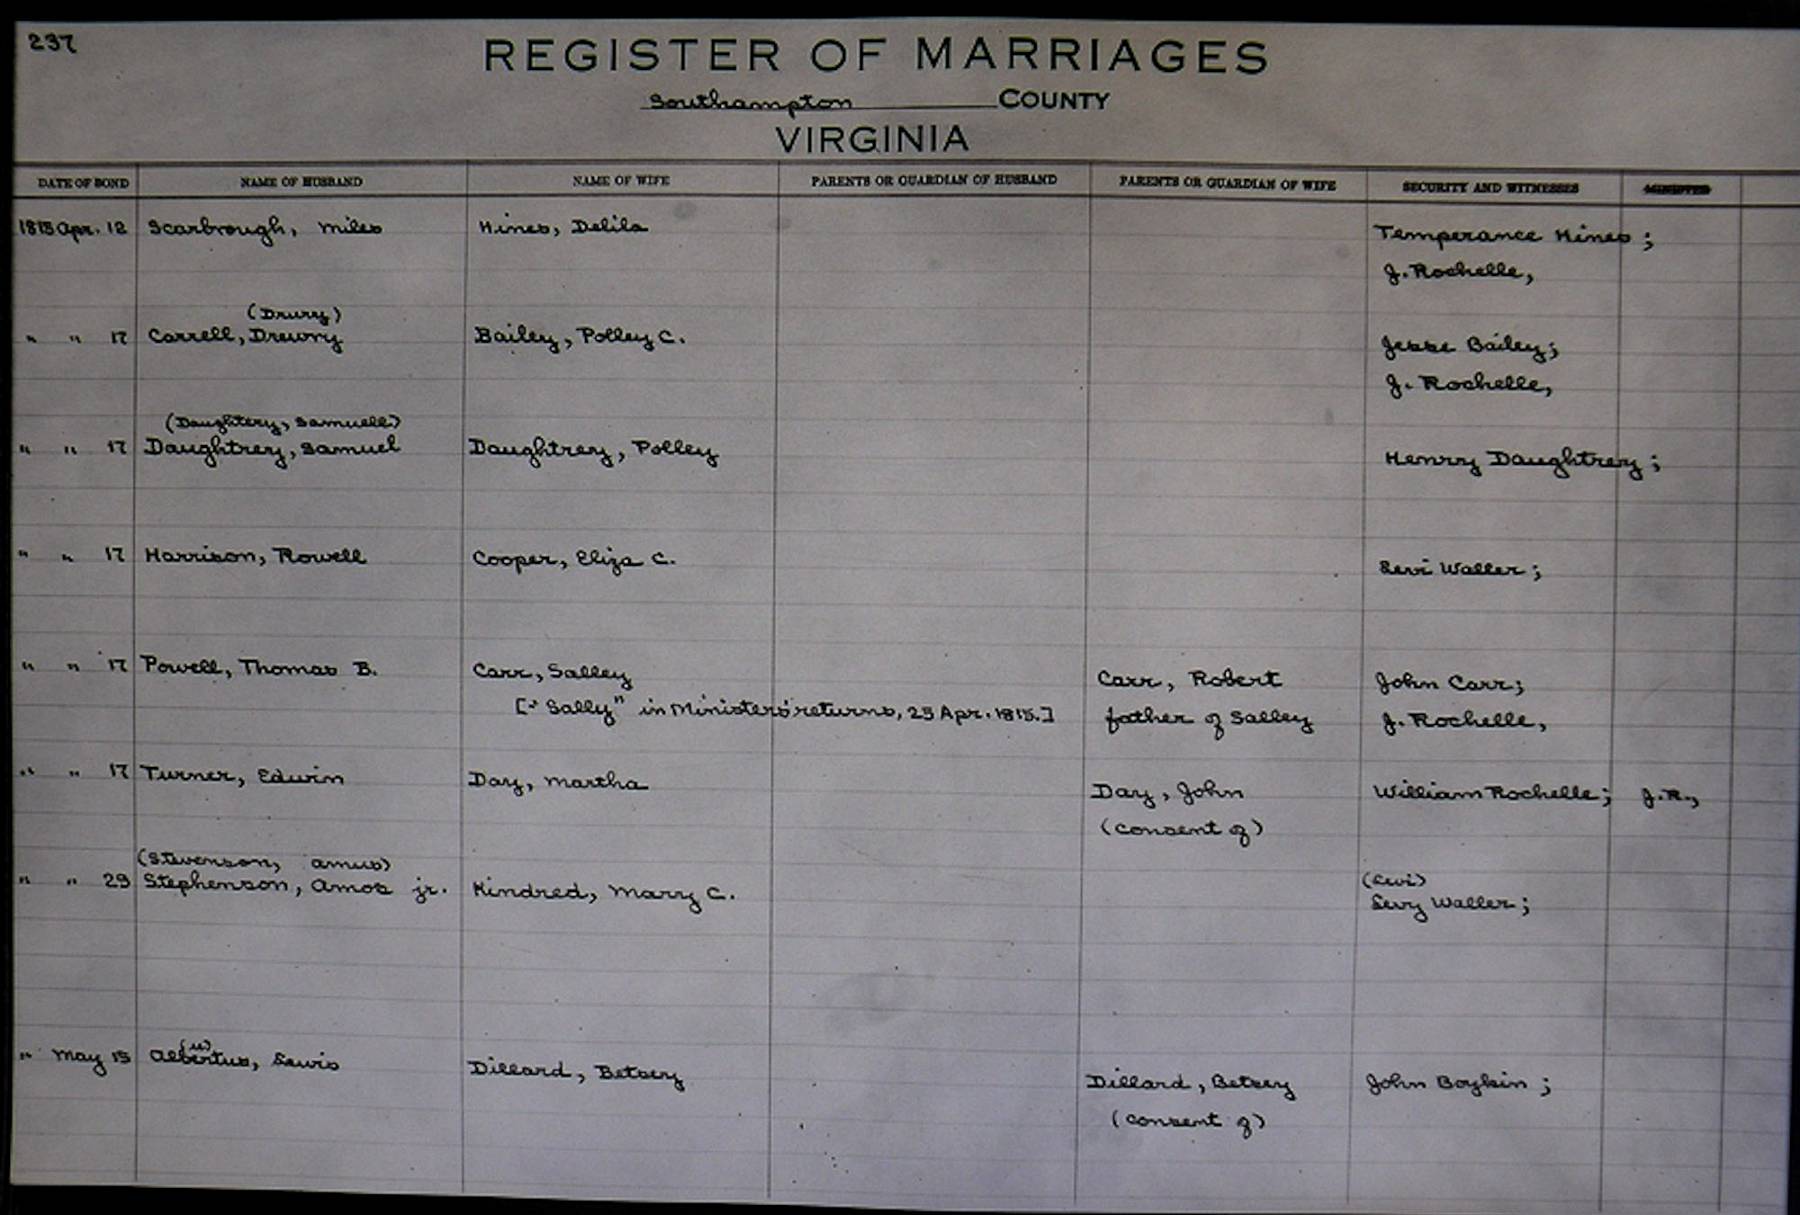 237
REGISTER OF MARRIAGES
Southampton COUNTY
VIRGINIA
DATE OF BOND NAME OF HUSBAND NAME OF WIFE PARENTS OR GUARDIAN OF HUSBAND PARENTS OR GUARDIAN OF WIFE SECURITY AND WITNESSES MINISTER
1815 Apr. 12 Scarbrough, Miles Hines, Delila Temperance Hines;
J. Rochelle,
(Drury)
" " 17 Carrell, Drewry Bailey, Polley C. Jesse Bailey;
J. Rochelle,
(Daughtery, Samuell)
" " 17 Daughtrey, Samuel Daughtrey, Polley Henry Daughtrey;
" " 17 Harrison, Rowell Cooper, Eliza C. Levi Waller;
" " 17 Powell, Thomas B. Carr, Salley Carr, Robert John Carr;
[-"Sally" in Ministers' returns, 25 Apr. 1815.] father of Salley J. Rochelle,
" " 17 Turner, Edwin Day, Martha Day, John William Rochelle; J.R.,
(consent of)
(Stevenson, Amus) (Levi)
" " 29 Stephenson, Amos jr. Kindred, Mary C. Levy Waller;
(u)
" May 15 Albertus, Lewis Dillard, Betsey Dillard, Betsey John Boykin;
(consent of)